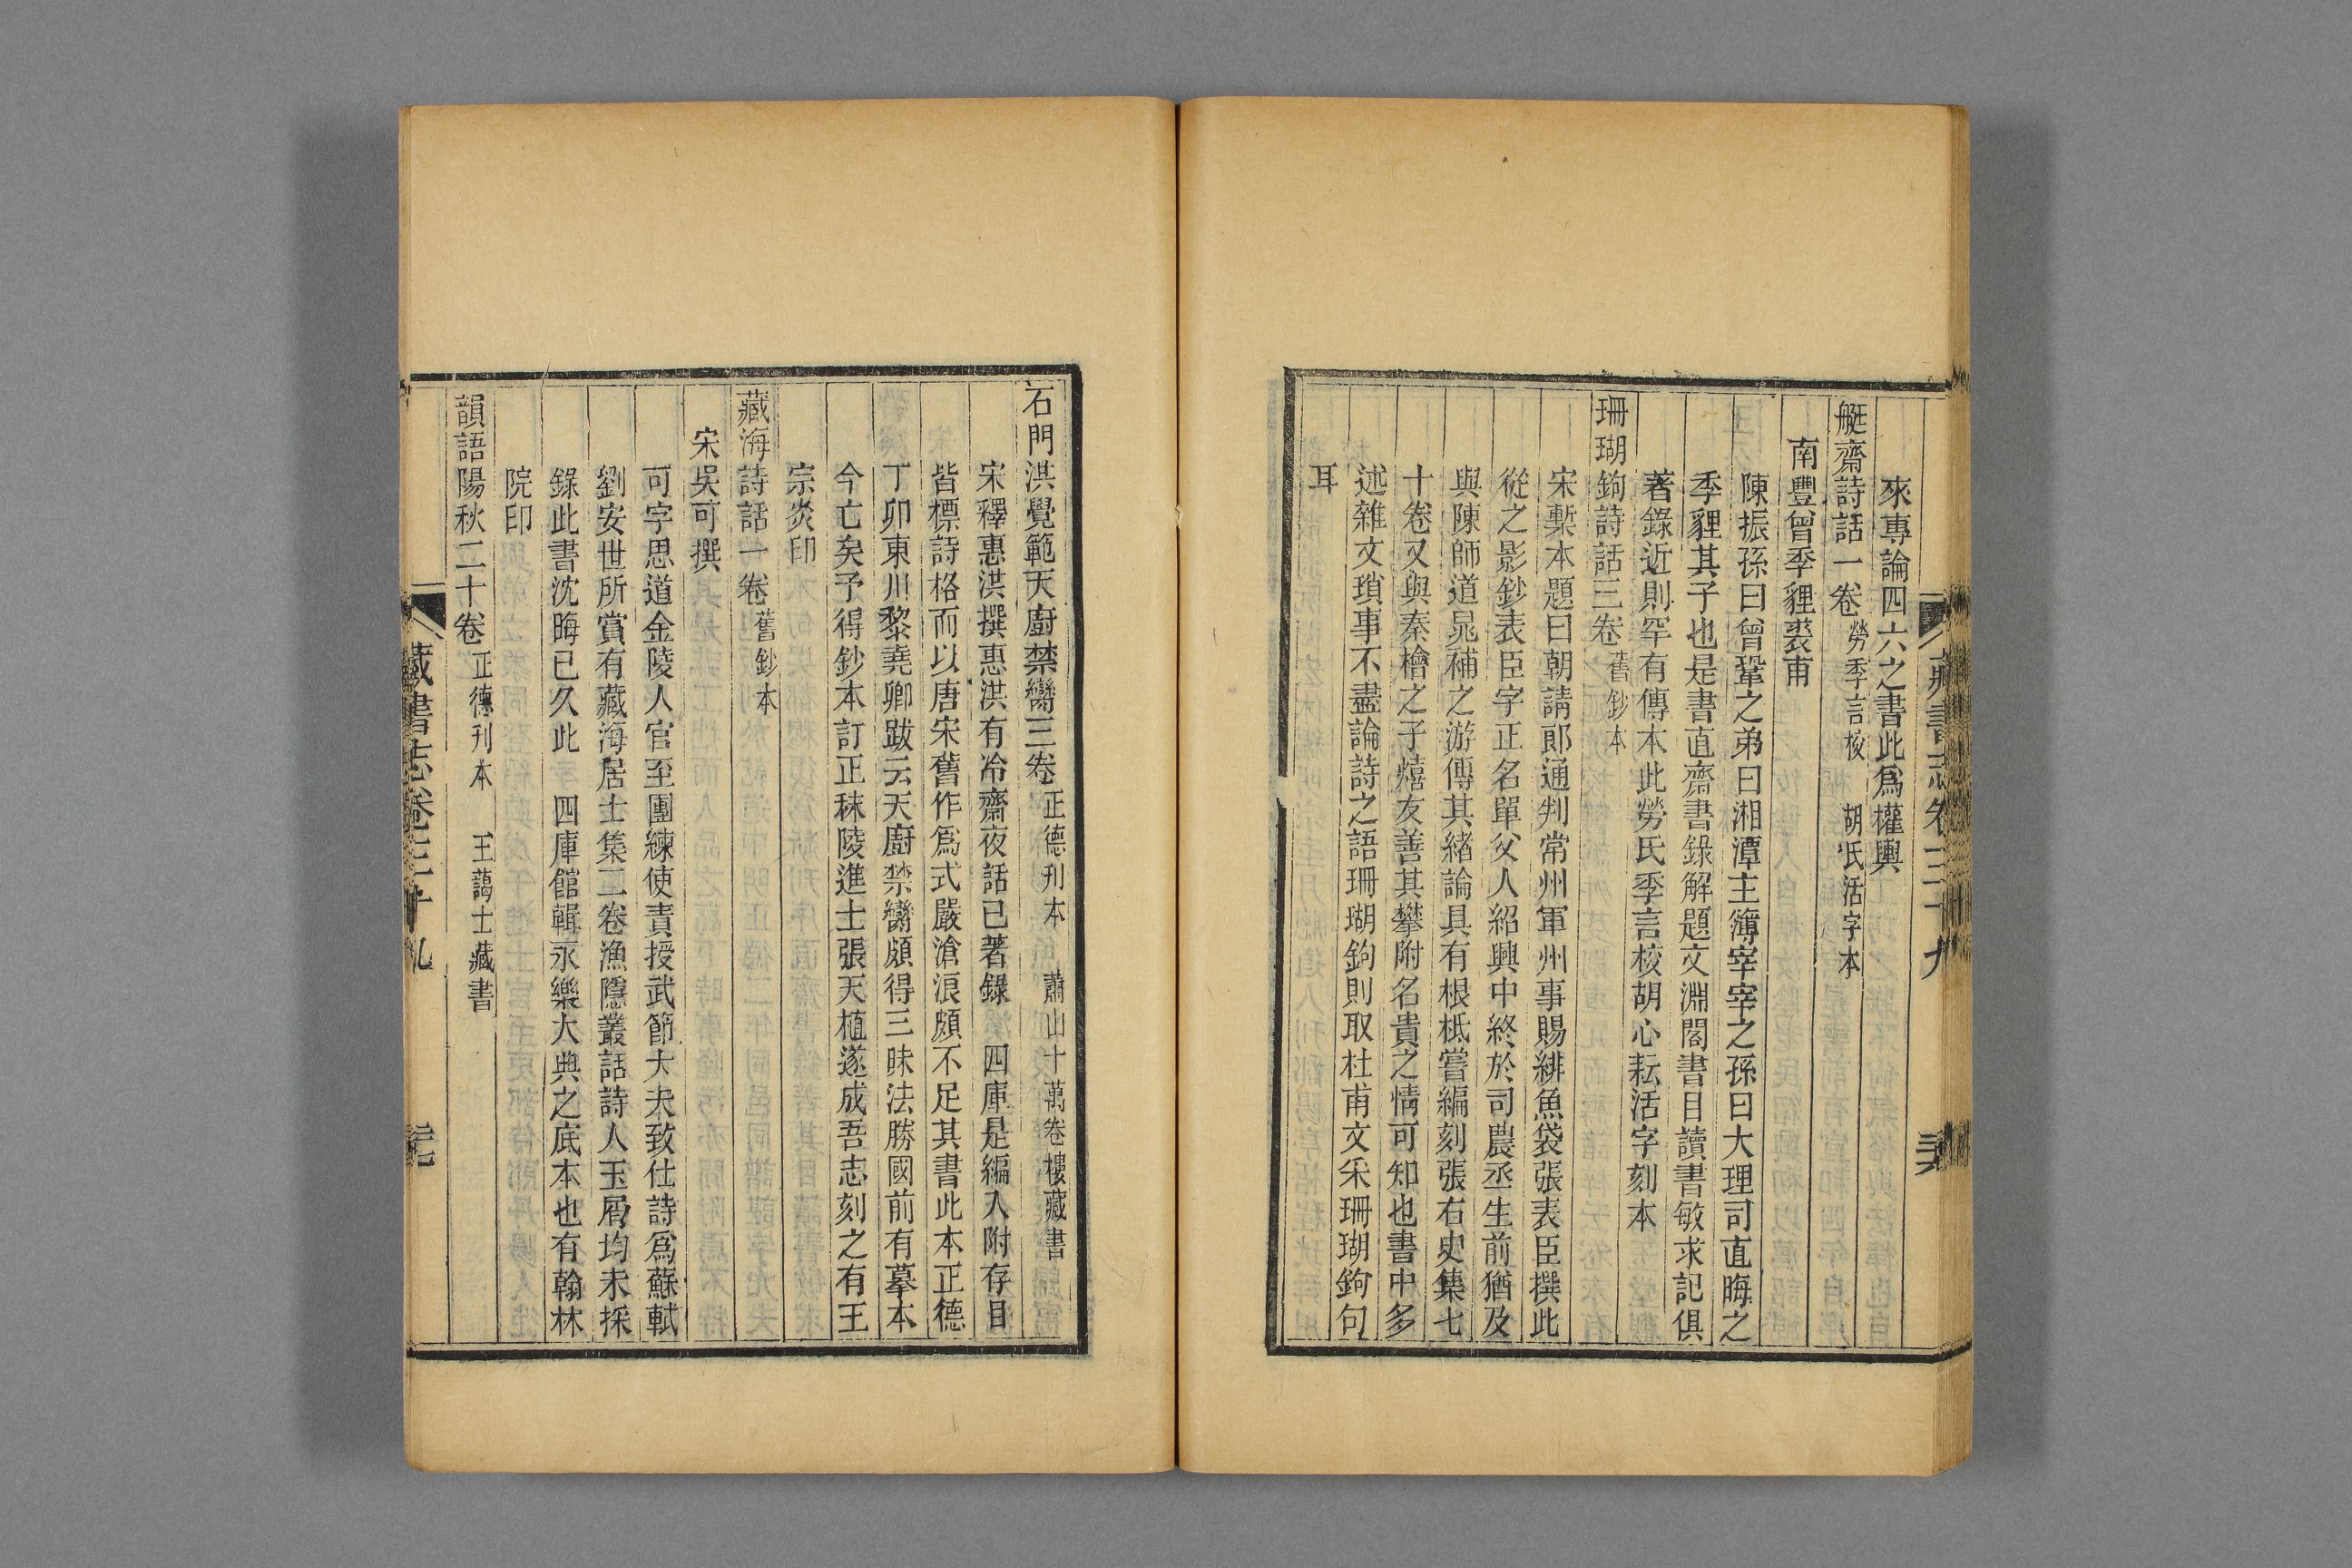 來專論四六之書此爲權輿
艇齋詩話一卷 勞季言校 胡氏活字本
南豐曾季貍裘甫
陳振孫曰曾鞏之弟曰湘潭主簿宰宰之孫曰大理司直晦之
季貍其子也是書直齋書錄解題文淵閣書目讀書敏求記俱
著錄近則罕有傳本此勞氏季言校胡心耘活字刻本
珊瑚鉤詩話三卷 舊鈔本
宋槧本題曰朝請郎通判常州軍州事賜緋魚袋張表臣撰此
從之影鈔表臣字正名單父人紹興中終於司農丞生前猶及
與陳師道晁補之游傳其緒論具有根柢嘗編刻張右史集七
十卷又與秦檜之子熺友善其攀附名貴之情可知也書中多
述雜文瑣事不盡論詩之語珊瑚鉤則取杜甫文采珊瑚鉤句
耳
藏書志卷三十九
石門洪覺範天廚禁臠三卷 正德刋本 蕭山十萬卷樓藏書
宋釋惠洪撰惠洪有冷齋夜話已著錄 四庫是編入附存目
皆標詩格而以唐宋舊作爲式嚴滄浪頗不足其書此本正德
丁卯東川黎堯卿跋云天廚禁臠頗得三昧法勝國前有摹本
今亡矣予得鈔本訂正秣陵進士張天植遂成吾志刻之有王
宗炎印
藏海詩話一卷 舊鈔本
宋吳可撰
可字思道金陵人官至團練使責授武節大夫致仕詩爲蘇軾
劉安世所賞有藏海居士集二卷漁隱叢話詩人玉屑均未採
錄此書沈晦已久此 四庫館輯永樂大典之底本也有翰林
院印
韻語陽秋二十卷 正德刋本 王藹士藏書
藏書志卷三十九